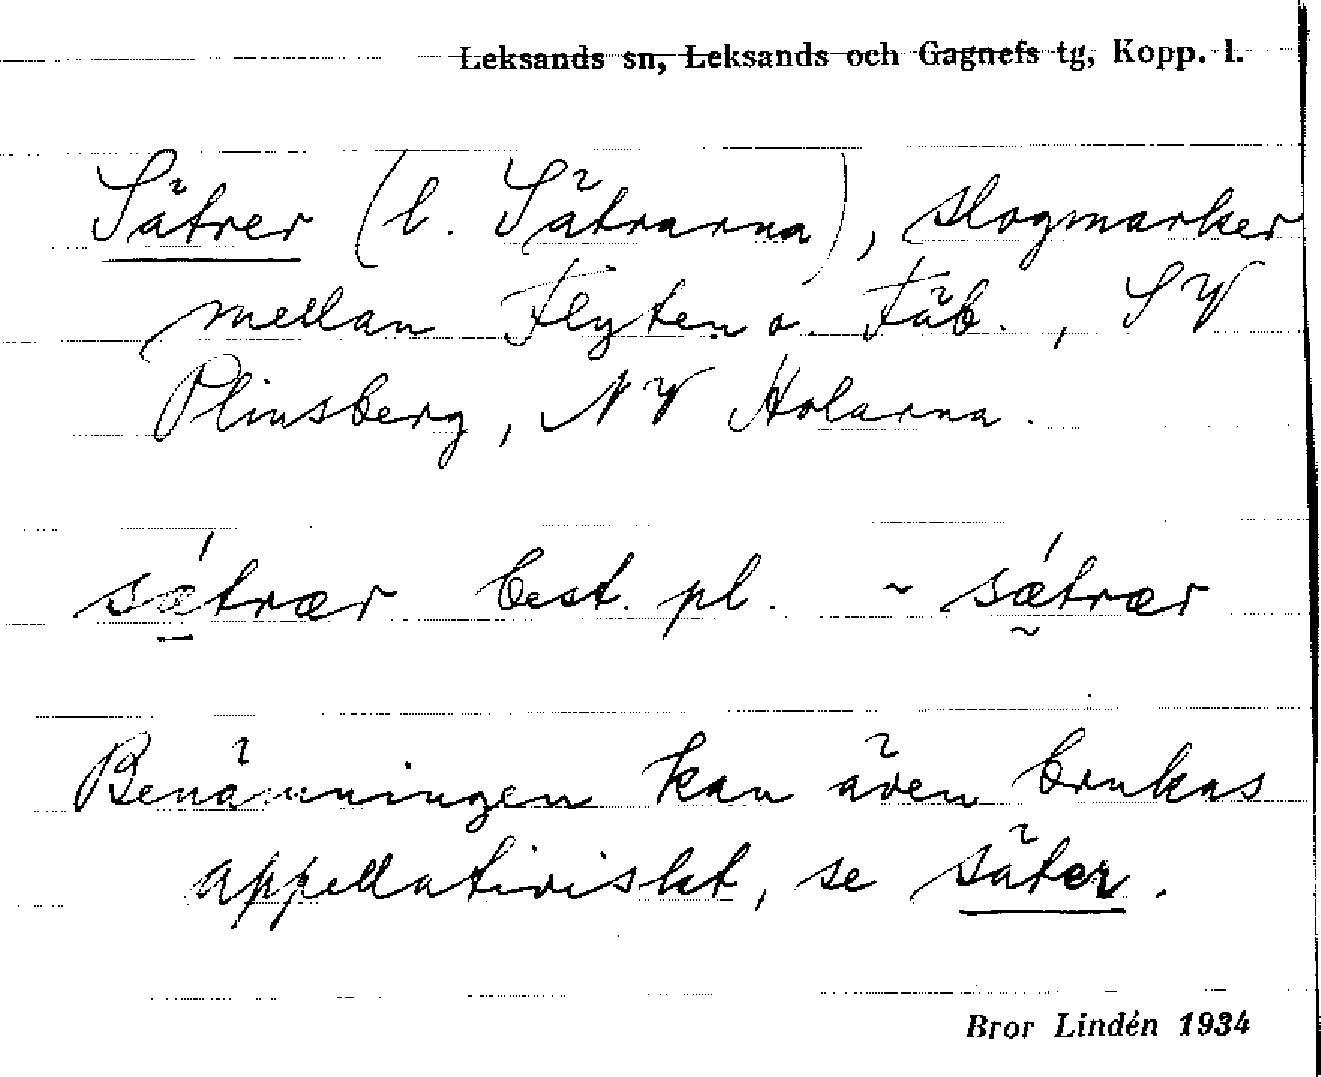 Leksands sn, Leksands och Gagnefs tg, Kopp. l.
Sätrer (l. Sätrarna), skogmarker
mellan Flyten o. Fäb., SV
Plinsberg, NV Holarna.
sǽtrær best. pl. ~ sǽtrær
Benämningen kan även brukas
appellativiskt, se säter.
Bror Lindén 1934